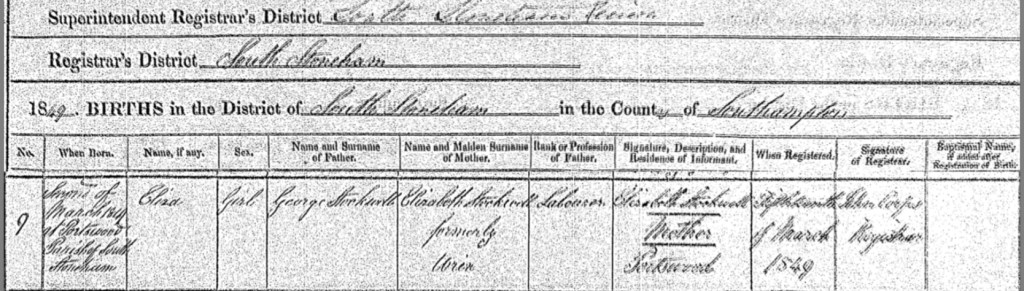 Superintendent Registrar's District South Stoneham Union
Registrar's District South Stoneham
1849. BIRTHS in the District of South Stoneham in the County of Southampton
No. When Born. Name, if any. Sex. Name and Surname of Father. Name and Maiden Surname of Mother. Rank or Profession of Father. Signature, Description, and Residence of Informant. When Registered. Signature of Registrar. Baptismal Name, if added after Registration of Birth.
9 Second of March 1849 at Portswood Parish of South Stoneham
Eliza
Girl
George Stockwell
Elizabeth Stockwell formerly Wren
Labourer
Elizabeth Stockwell Mother Portswood
of March 1849
John Corps Registrar